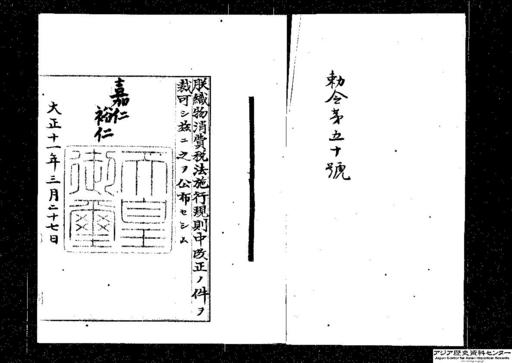 勅令第五十號
朕織物消費税法施行規則中改正ノ件ヲ
裁可シ茲ニ之ヲ公布セシム
嘉仁
裕仁
天皇
御璽
大正十一年三月二十七日
アジア歴史資料センター
Japan Center for Asian Historical Records